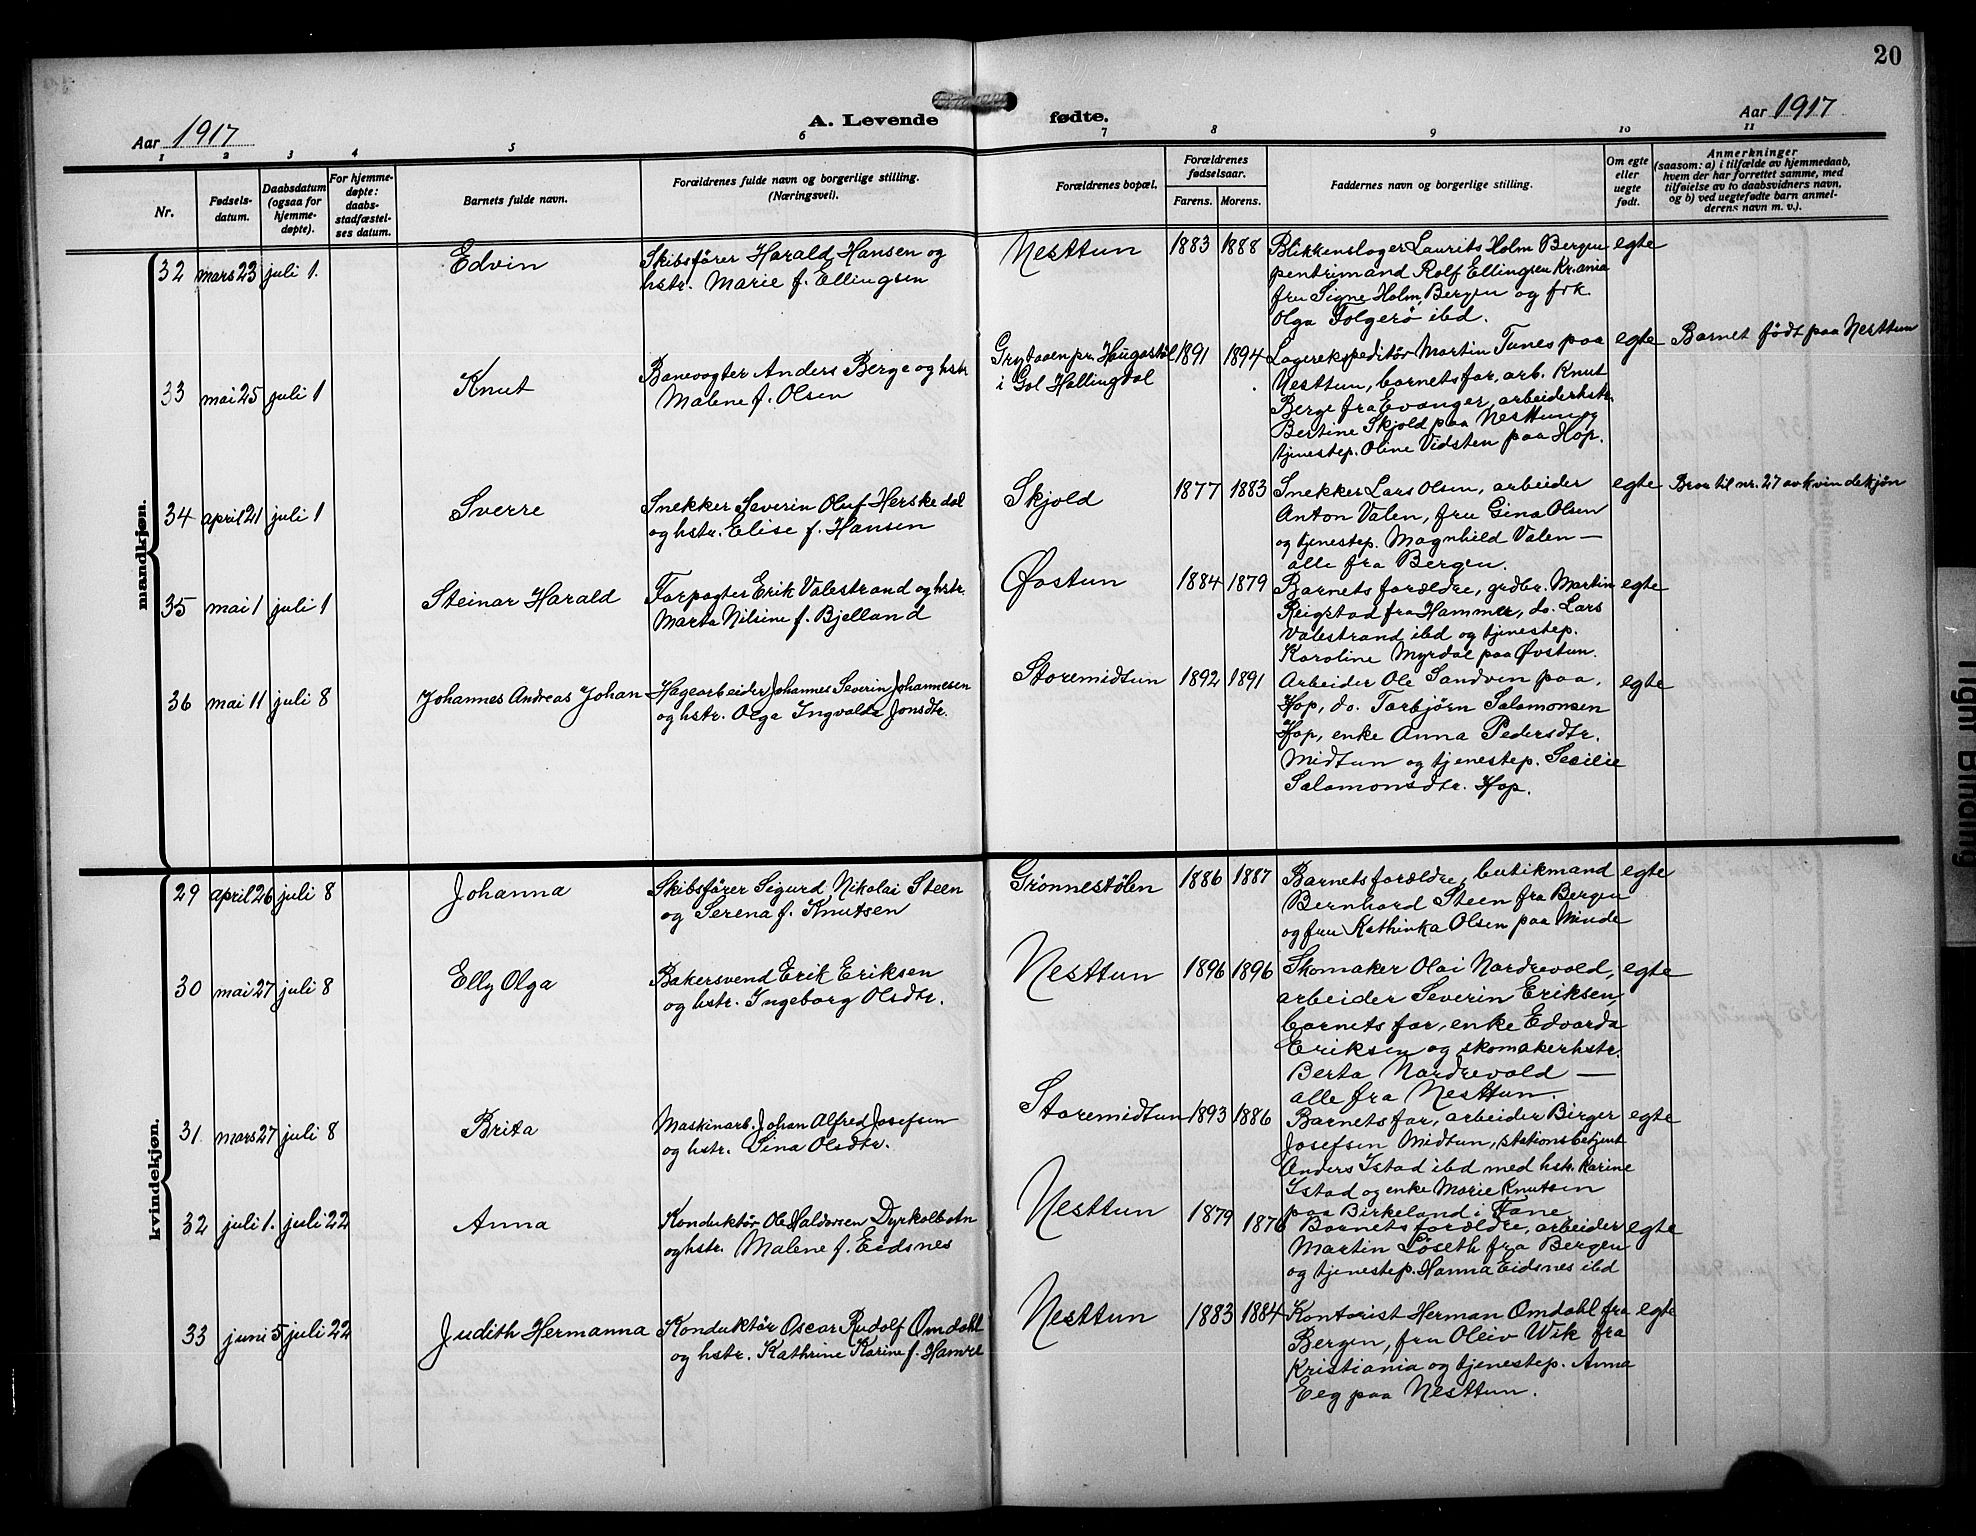 20
A. Levende fødte.
Aar 1917
Aar 1917
1 2 3 4 5 6 7 8 9 10 11
Nr.
Fødsels-
datum.
Daabsdatum
(ogsaa for
hjemme-
døpte).
For hjemme-
døpte:
daabs-
stadfæstel-
ses datum.
Barnets fulde navn.
Forældrenes fulde navn og borgerlige stilling.
(Næringsvei).
Forældrenes bopæl.
Forældrenes
fødselsaar.
Farens. Morens.
Faddernes navn og borgerlige stilling.
Om egte
eller
uegte
født.
Anmerkninger
(saasom: a) i tilfælde av hjemmedaab,
hvem der har forrettet samme, med
tilføielse av to daabsvidners navn,
og b) ved uegtefødte barn anmel-
derens navn m. v.).
mandkjøn.
32 mars 23 juli 1. Edvin
Skibsfører Harald Hansen og
hstr. Marie f. Ellingsen
Nesttun 1883 1888
Blikkenslager Laurits Holm Bergen
pentrimand Rolf Ellingsen Kr.ania
fru Signe Holm, Bergen og frk.
Olga Folgerø ibd.
egte
33 mai 25 juli 1 Knut
Banevogter Anders Berge og hstr
Malene f. Olsen
Grytaaen pr. Haugastøl
i Gol Hallingdal
1891 1894
Lagerekspeditør Martin Tunes paa
Nesttun, barnets far, arb. Knut
Berge fra Evanger, arbeiderhstr.
Bertine Skjold paa Nesttun og
tjenestep. Oline Vidsten paa Hop.
egte
Barnet født paa Nesttun
34 april 21 juli 1 Sverre
Snekker Severin Oluf Herskedal
og hstr. Elise f. Hansen
Skjold 1877 1883
Snekker Lars Olsen, arbeider
Anton Valen, fru Gina Olsen
og tjenestep. Magnhild Valen —
alle fra Bergen.
egte
Bror til nr. 27 av kvindekjøn
35 mai 1 juli 1 Steinar Harald
Forpagter Erik Valestrand og hstr.
Marta Nilsine f. Bjelland
Øvstun 1884 1879
Barnets forældre, grdbr. Martin
Reigstad fra Hammer, do. Lars
Valestrand ibd og tjenestep.
Karoline Myrdal paa Øvstun.
egte
36 mai 11 juli 8 Johannes Andreas Johan
Hagearbeider Johannes Severin Johannesen
og hstr. Olga Ingvalda Jonsdtr.
Storemidtun 1892 1891
Arbeider Ole Sandven paa
Hop, do. Torbjørn Salamonsen
Hop, enke Anna Pedersdtr.
Midtun og tjenestep. Secilie
Salamonsdtr. Hop.
egte
kvindekjøn.
29 april 26 juli 8 Johanna
Skibsfører Sigurd Nikolai Steen
og Serena f. Knutsen
Grønnestølen 1886 1887
Barnets forældre, butikmand
Bernhard Steen fra Bergen
og fru Kathinka Olsen paa Minde
egte
30 mai 27 juli 8 Elly Olga
Bakersvend Erik Eriksen
og hstr. Ingeborg Olsdtr.
Nesttun 1896 1896
Skomaker Olai Nordrevold,
arbeider Severin Eriksen,
barnets far, enke Edvarda
Eriksen og skomakerhstr.
Berta Nordrevold —
alle fra Nesttun.
egte
31 mars 27 juli 8 Brita
Maskinarb. Johan Alfred Josefsen
og hstr. Sina Olsdtr.
Storemidtun 1893 1886
Barnets far, arbeider Birger
Josefsen Midtun, stationsbetjent
Anders Istad ibd med hstr. Karine
Istad og enke Marie Knutsen
paa Birkeland i Fane.
egte
32 juli 1. juli 22 Anna
Konduktør Ole Haldorsen Dyrkolbotn
og hstr. Malene f. Eidsnes
Nesttun 1879 1876
Barnets forældre, arbeider
Martin Løseth fra Bergen
og tjenestep. Hanna Eidsnes ibd
egte
33 juni 5 juli 22 Judith Hermanna
Konduktør Oscar Rudolf Omdahl
og hstr. Kathrine Karine f. Hamre
Nesttun 1883 1884
Kontorist Herman Omdahl fra
Bergen, fru Oleiv Wik fra
Kristiania og tjenestep. Anna
Eeg paa Nesttun.
egte
Tight Binding